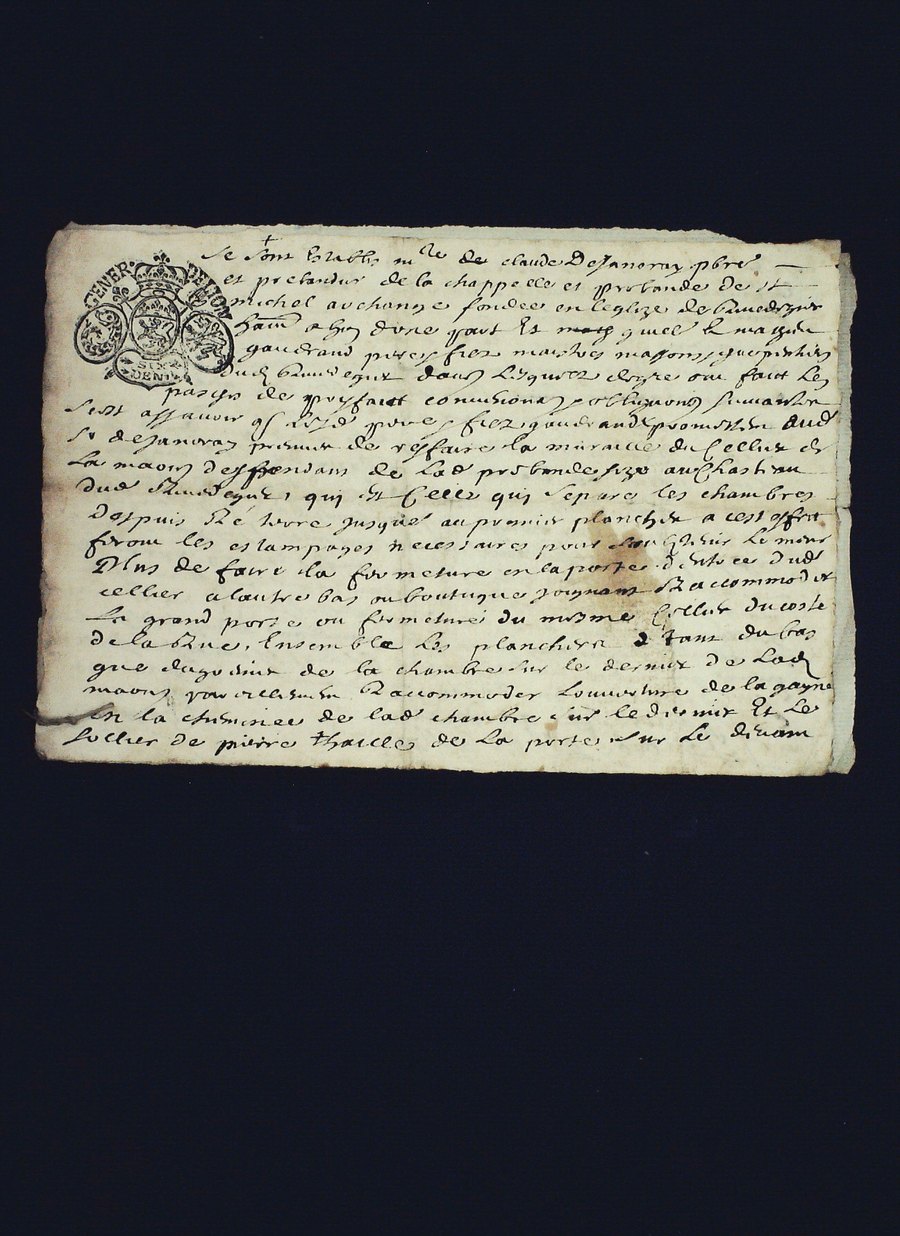 GENER. DE LION
SIX
DENI
Se sont establis m.re de claude DeJanoray pbre
et prebandier de la chappelle et prebande de st
michel archange fondée en leglize de
dune part Et
gaudrand pere & fiez maistres massons & charpentiers
dud dans lesquelz de gre ont faict les
pasches de prisfaict convnions & obligations suivantes
Sest assavoir que lesd pere & fiez gaudrand promettent aud
Sr deJanoray premier de reffaire la muraille du Cellier de
La maon deppendant de Lad prebande size au Chasteau
dud qui est Celle qui separe les chambres
despuis Ré terre jusques au premier plancher a cest effect
feront les estampages necessaires pour soubstenir le mur
Plus de faire la formeture en la porte d'entrée dud
cellier a lautre bas ou boutique joignant Raccommoder
La grand porte ou formeture du mesme Cellier du coste
de la Rue, Ensemble Les planchers tant du bas
que du godiur de la chambre sur le dernier de Lad
maon Raccommoder Louverture de la gayne
En la cheminee de lad chambre sur le dernier Et Le
sollier de pierre de La porte sur Le devant